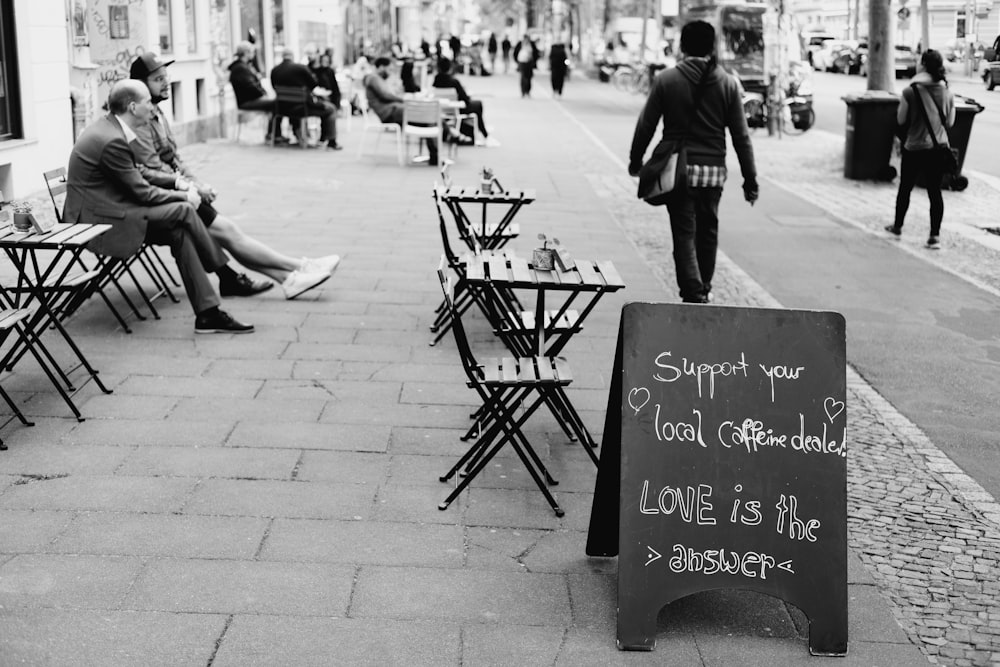 Support your
♡ local caffeine dealer! ♡
LOVE is the
> answer <